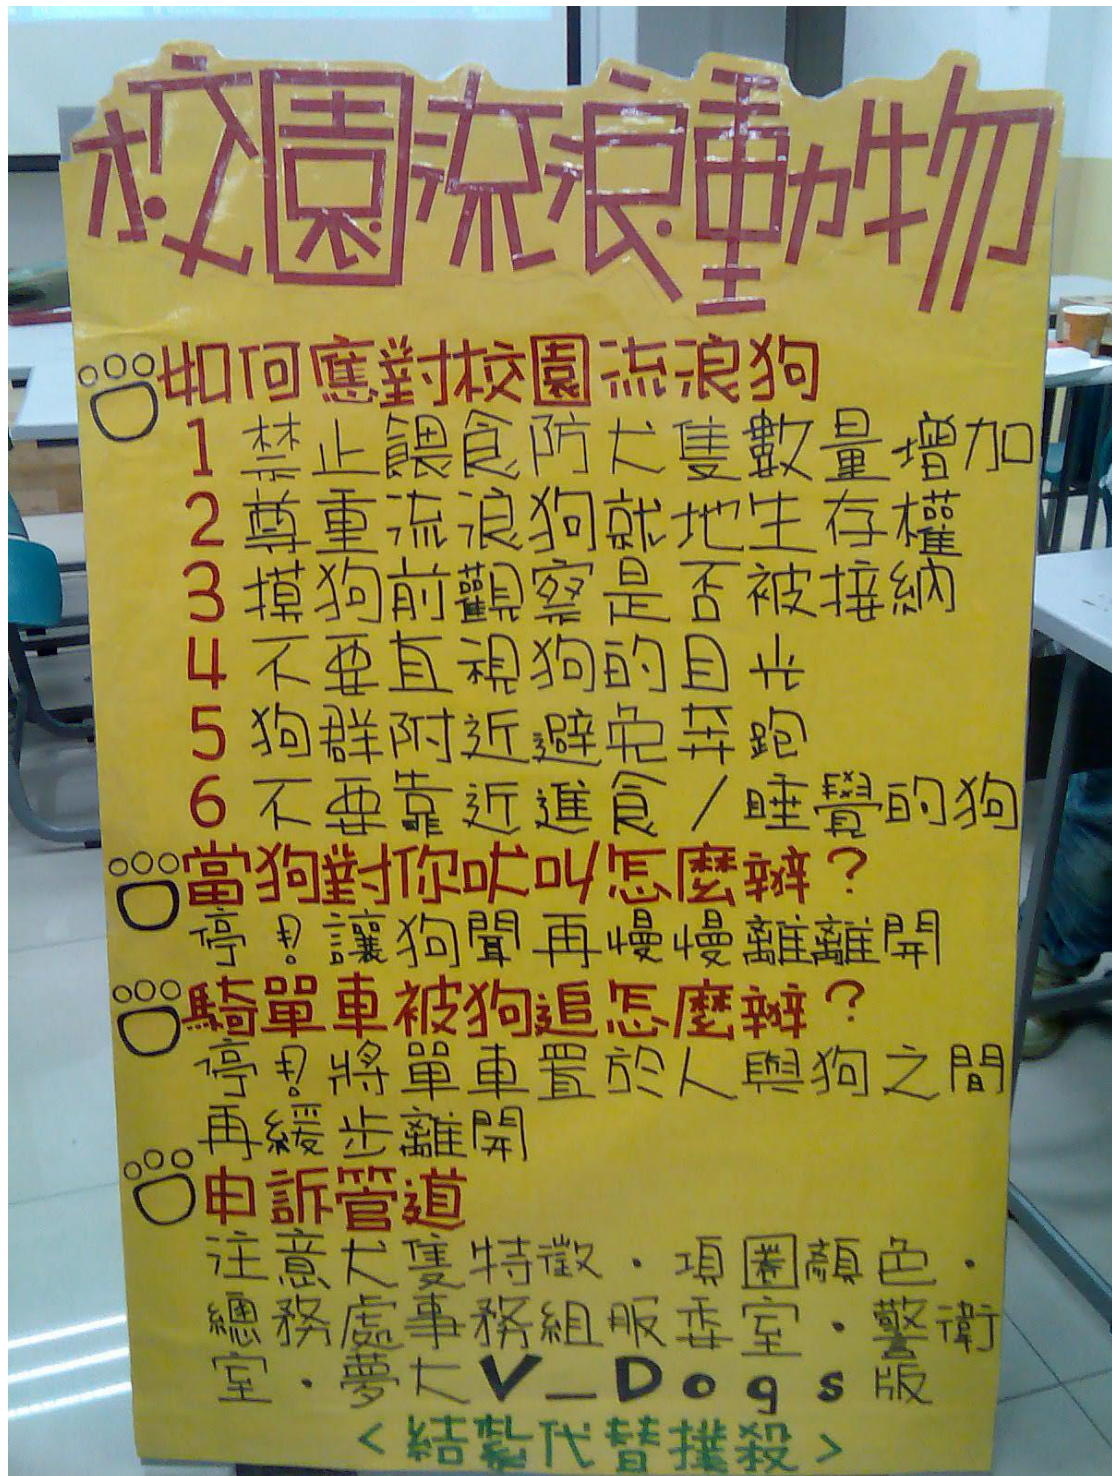 校園流浪動物
如何應對校園流浪狗
1 禁止餵食防犬隻數量增加
2 尊重流浪狗就地生存權
3 摸狗前觀察是否被接納
4 不要直視狗的目光
5 狗群附近避免奔跑
6 不要靠近進食/睡覺的狗
當狗對你吠叫怎麼辦?
停!!讓狗聞再慢慢離離開
騎單車被狗追怎麼辦?
停!!將單車置於人與狗之間
再緩步離開
申訴管道
注意犬隻特徵.項圈顏色.
總務處事務組服委室.警衛
室.夢大V_Dogs版
<結紮代替撲殺>